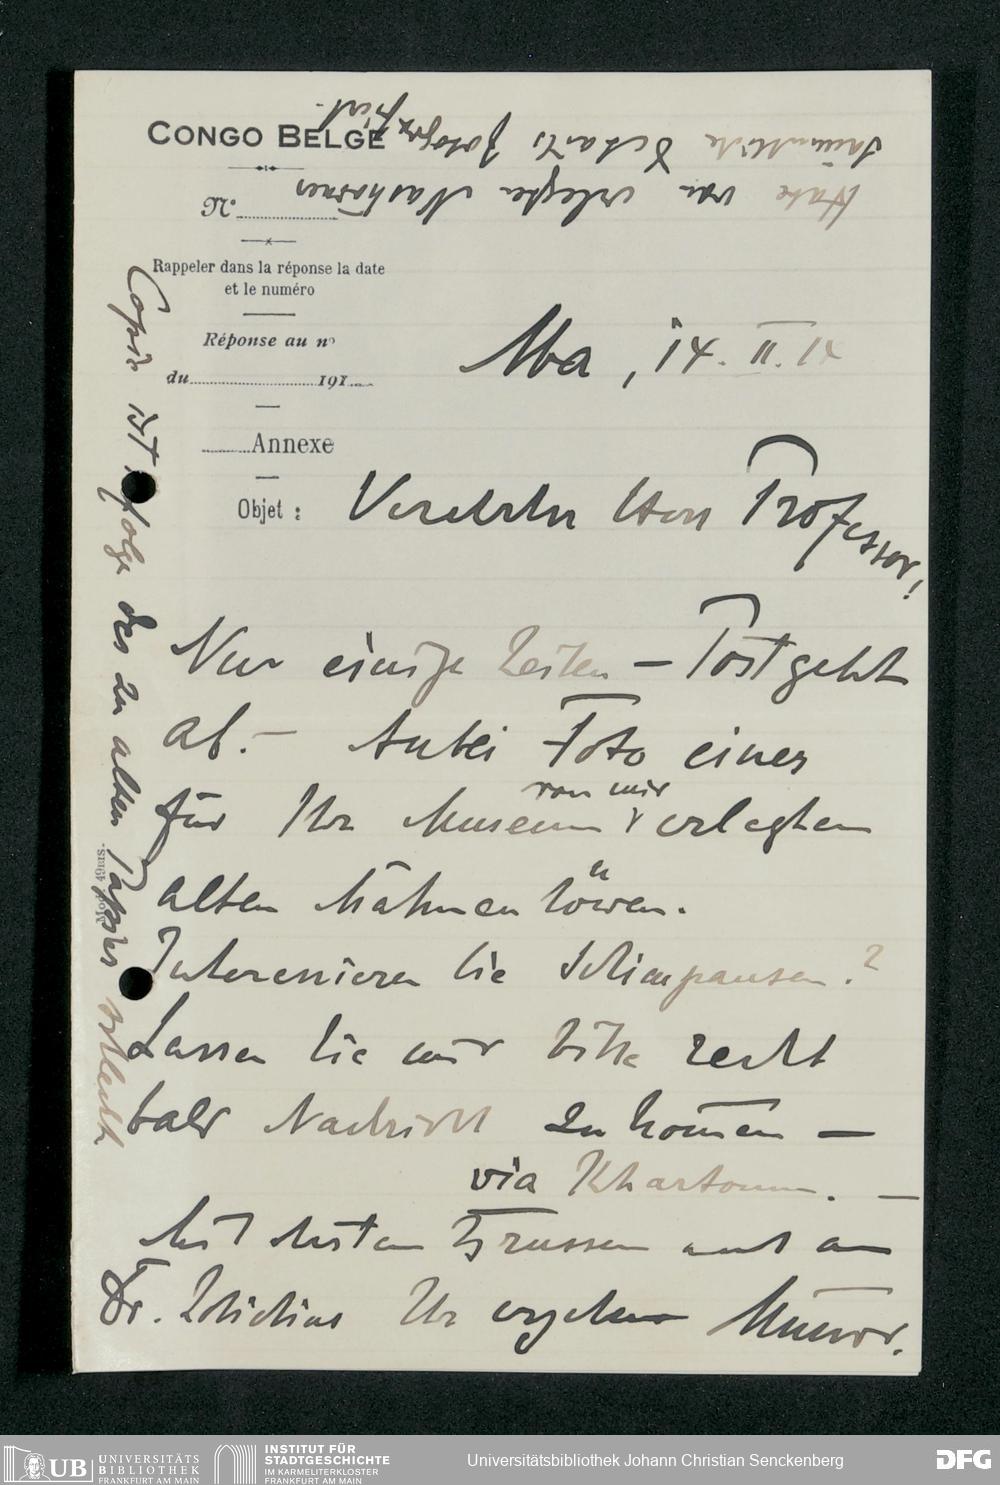 CONGO BELGE
N°
Rappeler dans la réponse la date
et le numéro
Réponse au n°
du 191
Annexe
Objet :
Habe von erlegten Nashörner
sämmtliche Details fotografiert.
Aba, 14. II. 14
Verehrter Herr Professor!
Nur einige Zeilen – Post geht
ab. – Anbei Foto eines
für Ihr Museum von mir erlegten
alten Mähnenlöwen.
Interessieren Sie Schimpansen?
Lassen Sie mir bitte recht
bald Nachricht zu kommen –
via Khartoum. –
Mit besten Grüssen auch an
Dr. Ihr ergebener
Copie ist folge des zu alten Papiers schlecht
Mod. 49bis.
UB UNIVERSITÄTS
BIBLIOTHEK
FRANKFURT AM MAIN
INSTITUT FÜR
STADTGESCHICHTE
IM KARMELITERKLOSTER
FRANKFURT AM MAIN
Universitätsbibliothek Johann Christian Senckenberg
DFG